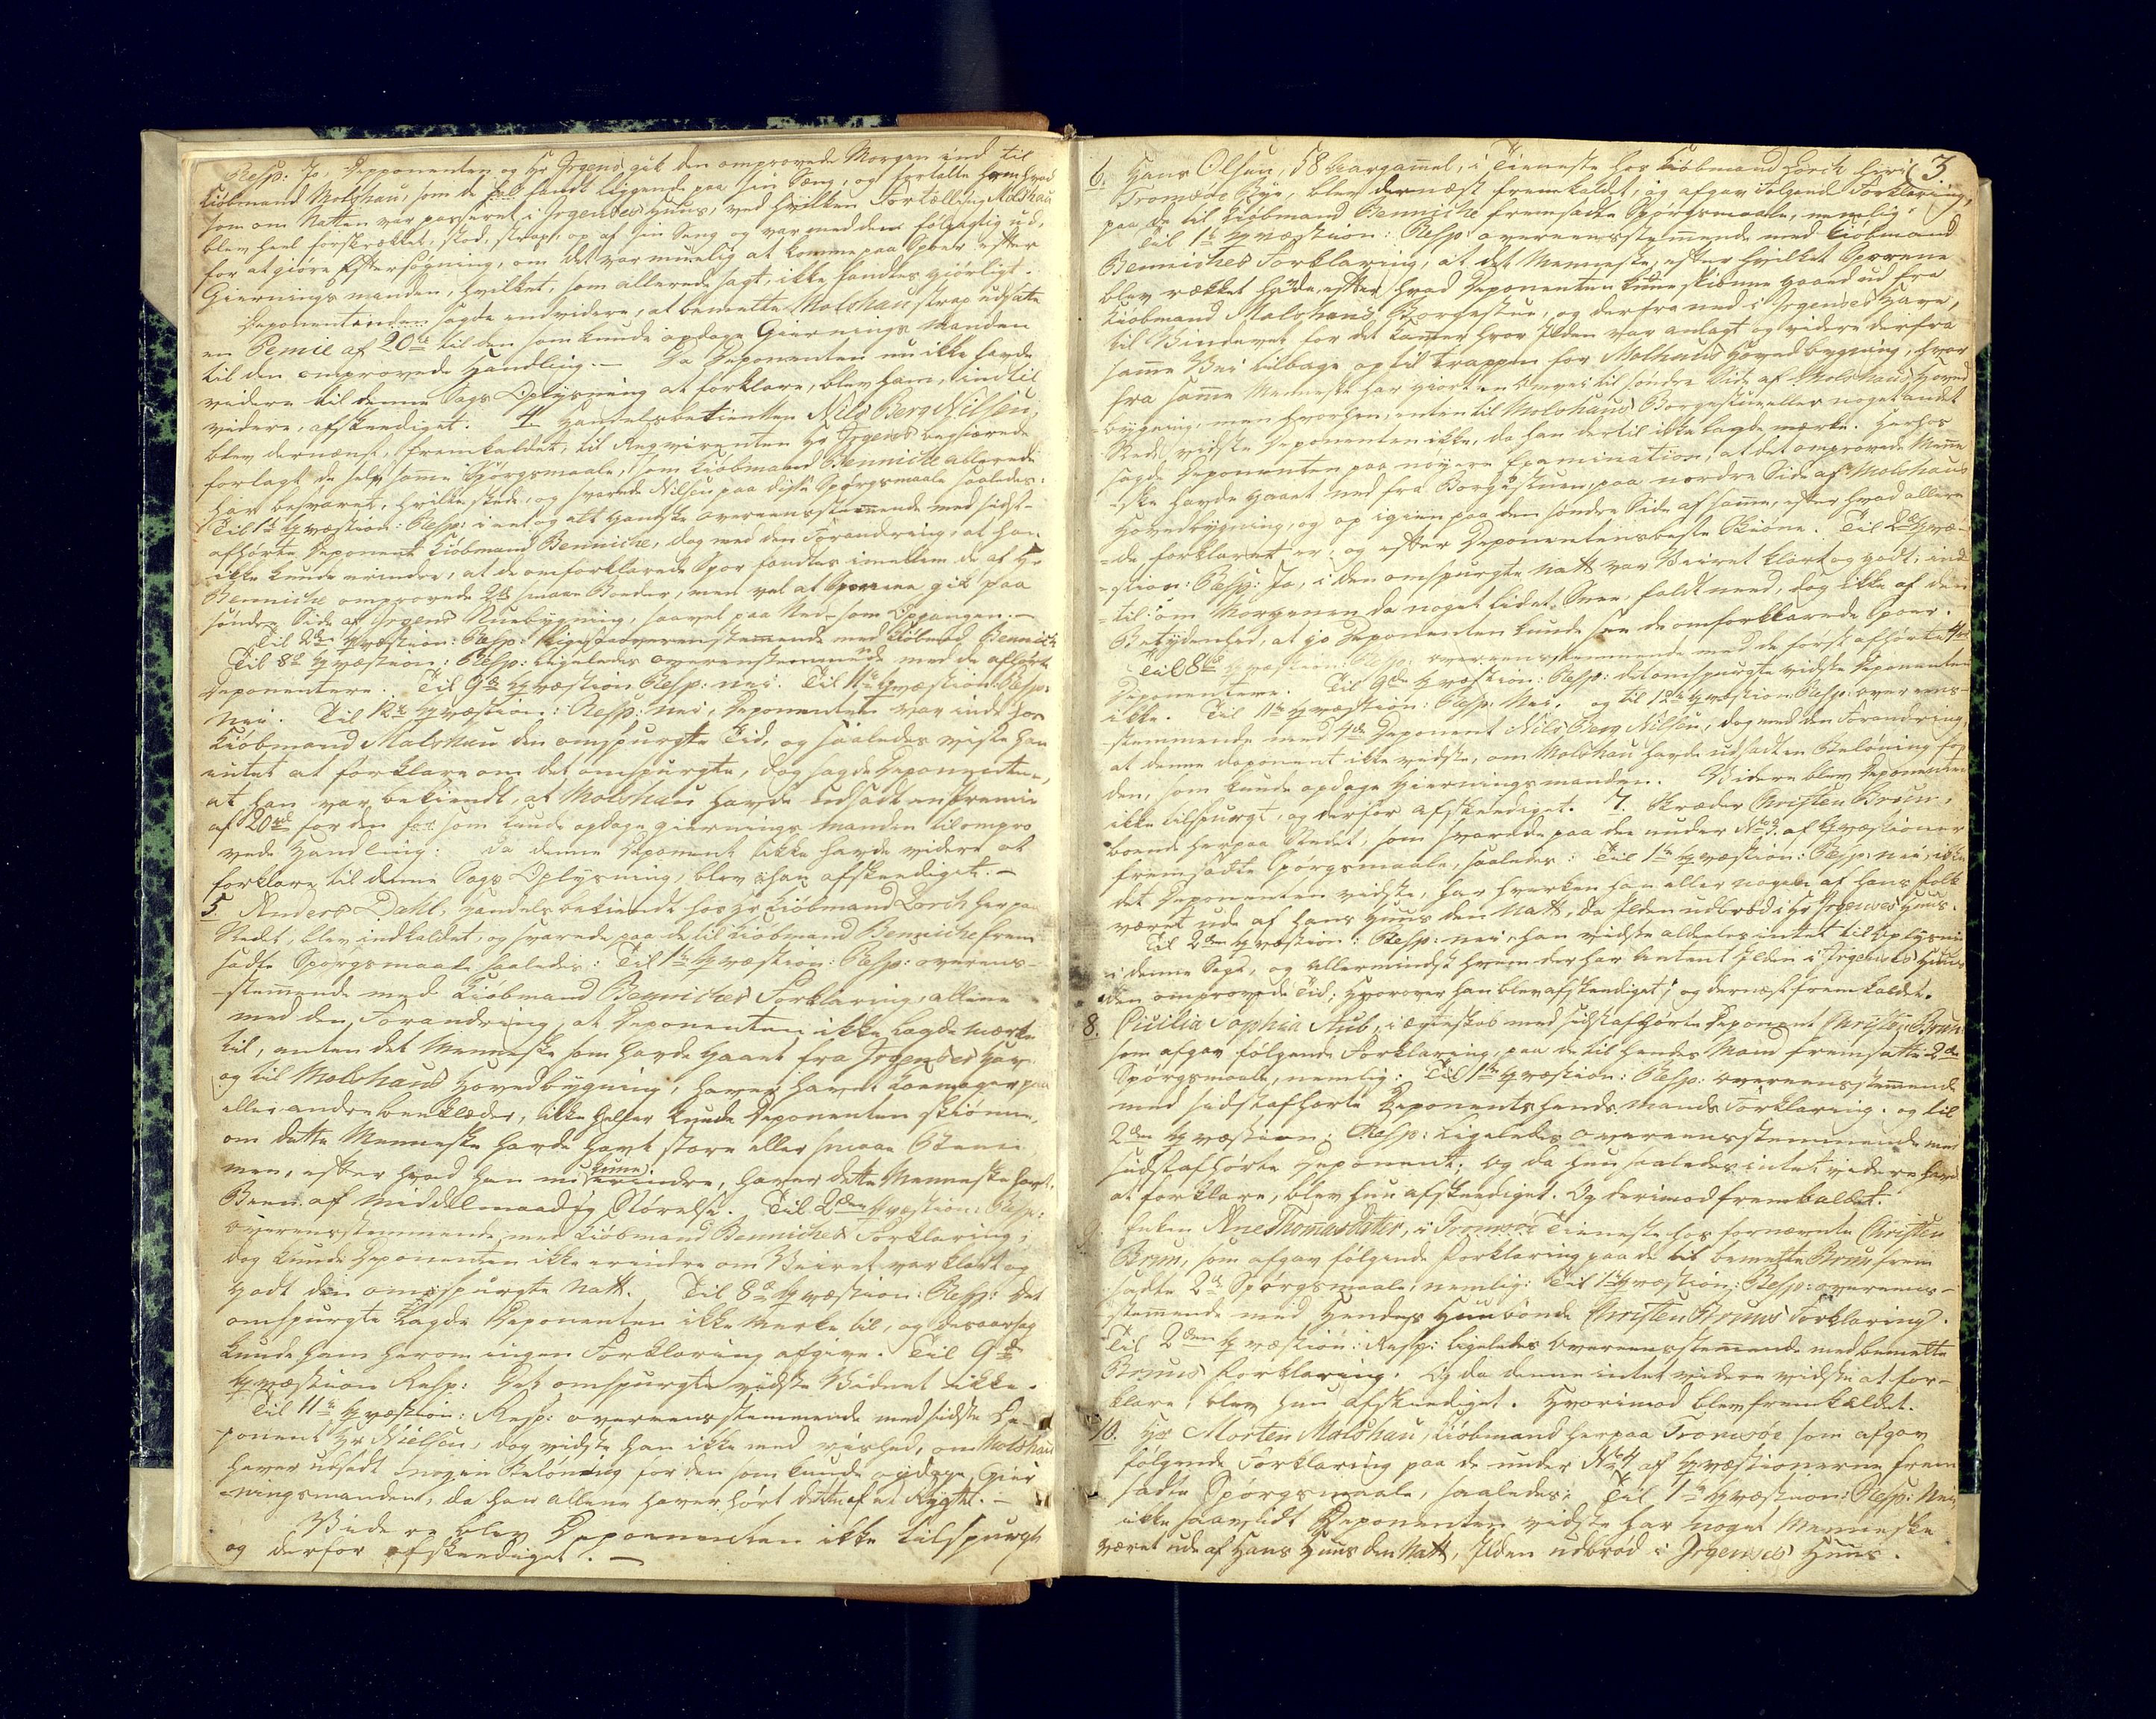 Resp: Jo, Depponenten og Hr Jrgens gik den omprovede Morgen ind til
Kiöbmand Molshau, som de fandt liggende paa sin Seng, og fortalte ham hvad
som om Natten var passeret i Jrgenses Huus, ved hvilken Fortælling Molshau
blev heel forskrækket, stod, strax, op af sin Seng og var med dem fölgagtig ud,
for at giöre Eftersögning, om det var muelig at komme paa Spoer efter
Giernings manden, hvilket, som allerede sagt, ikke fandtes giörligt.
Deponenten sagde endvidere, at bemelte Molshau strax udsatte
en Pemie af 20 rd til den som kunde opdage Giernings Manden
til den omprovede Handling. — Da Deponenten nu ikke havde
videre til denne Sags Oplysning at forklare, blev ham, indtil
videre, afskeediget. 4 Handelsbetienten Nils Berg Nilsen,
blev dernæst, fremkaldet, til Reqvirenten Hr Jrgens begiærede
forlagt de selv samme Spörgsmaale, som Kiöbmand Benniche allerede
har besvaret, hvilke skede, og svarede Nilsen paa disse Spörgsmaale saaledes:
Til 1te Qvæstion: Resp: i eet og alt gandske overeensstemmende med sidst-
afhörte Deponent Kiöbmand Benniche, dog med den Forandring, at han
ikke kunde erindre, at de omforklarede Spor fandtes imellem de af Hr
Benniche omprovede 2de smaae Boeder, men vel at Sporene gik paa
söndre Side af Jrgens Nuebygning, saavel paa Ned- som Opgangen. —
Til 2den Qvæstion: Resp: ligesaa overeenstemmende med Kiöbmd Bennich
Til 8de Qvæstion: Resp: ligeledes overeenstemmende med de afhörte
Deponentere. Til 9de Qvæstion Resp: nei. Til 11te Qvæstion: Resp:
Nei. Til 12te Qvæstion: Resp: Nei, Deponenten var inde hos
Kiöbmand Molshau den omspurgte Tid, og saaledes viste han
intet at forklare om det omspurgte, dog sagde Deponenten,
at han var bekiendt, at Molshau havde udsadt en Premie
af 20 rd for den som kunde opdage giernings Manden til ompro
vede Handling. Da denne Deponent ikke havde videre at
forklare til denne Sags Oplysning, blev han afskeediget. —
5. Anders Dahl, Handelsbetiendt hos Hr Kiöbmand Lorch her paa
Stedet, blev indkaldet, og svarede paa de til Kiöbmand Benniche frem
sadte Spörgsmaale saaledes: Til 1te Qvæstion: Resp: overeens-
-stemmende med Kiöbmand Benniches Forklaring, allene
med den Forandring, at Deponenten ikke lagde mærke
til, enten det Menneske som havde gaaet fra Jrgenses Hav
og til Molshaus Hovedbygning, haver havet Komager paa
eller andre beenklæder, ikke heller kunde Deponenten skiönne,
om dette Menneske havde havt store eller smaae Been
men, efter hvad han nu kunne erindre, haver dette Menneske havt,
Been af middelmaadig Störelse. Til 2den Qvæstion: Resp:
overeensstemmende med Kiöbmand Benniches Forklaring,
dog kunde Deponenten ikke erindre om Veiret var klart og
godt den omspurgte Natt. Til 8de Qvæstion: Resp: Det
omspurgte lagde Deponenten ikke mærke til, og desaarsag
kunde ham herom ingen Forklaring afgive. Til 9de
Qvæstion Resp: Det omspurgte vidste Vidnet ikke.
Til 11te Qvæstion: Resp: overeensstemmende med sidste De-
ponent Hr Nielsen, dog vidste han ikke med vished, om Molshau
haver udsadt nogen Belöning for den som kunde opdage Gier
-ningsmanden, da han allene haver hört dette af et Rygte. —
Videre blev Deponenten ikke tilspurgt
og derfor afskeediget. —
3
6. Hans Olsen, 58 Aar gammel, i Tieneste hos Kiöbmand Lorch her i
Tromsöe Bye, blev dernæst fremkaldet, og afgav fölgende Forklaring,
paa de til Kiöbmand Benniche fremsadte Spörgsmaale, nemlig:
Til 1te Qvæstion: Resp: overeensstemmende med Kiöbmand
Benniches Forklaring, at det Menneske, efter hvilket Sporene
blev rækket havde, efter hvad Deponenten kunne skiönne gaaed ud fra
Kiöbmand Molshaus Borgestue, og derfra ned i Jrgenses Have,
til Vinduet for det Kammer hvor Jlden var anlagt og videre derfra
samme Vei tilbage op til trappen for Molshaus Hovedbygning, hvor
fra samme Menneske har giort en Omvei til söndre Side af Molshaus Hoved
-bygning, men hvorhen, enten til Molshaus Borgestue eller noget andet
Sted vidste Deponenten ikke, da han dertil ikke lagde mærke. Herhos
sagde Deponenten paa nöyere Examination, at det omprovede Menne
-ske havde gaaet ned fra Borgestuen, paa nordre Side af Molshaus
Hovedbygning, og op igien paa den söndre Side af samme, efter hvad allere
-de forklaret er, og efter Deponentens beste Skiöne. Til 2de Qvæ-
-stion: Resp: Jo, i den omspurgte Natt var Veiret klart og godt, ind
-til om Morgenen da noget lidet Snee, faldt need, dog ikke af den
Betydenhed, at jo Deponenten kunde see de omforklarede Spoer.
Til 8de Qvæstion: Resp: overeensstemmende med de först afhörte 4re
Deponentere. Til 9de Qvæstion: Resp: det omspurgte vidste Deponenten
ikke. Til 11te Qvæstion: Resp: Nei, og til 12te Qvæstion Resp: overeens-
-stemmende med 4de Deponent Nils Berg Nilsen, dog med den Forandring
at denne deponent ikke vidste, om Molshau havde udsadt en Belöning for
den, som kunde opdage Gierningsmanden. Videre blev Deponenten
ikke tilspurgt, og derfor afskeediget. 7. Skræder Christen Brun,
boende herpaa Stedet, som svarede paa den under No 3. af Qvæstioner
fremsadte Spörgsmaale, saaledes: Til 1te Qvæstion: Resp: nei, ikke
det Deponenten vidste, har hverken han eller nogen af hans folk
været ude af hans Huus den Natt, da Jlden udbröd i Hr Jrgenses Huus.
Til 2den Qvæstion: Resp: nei, han vidste aldeles intet til Oplysning
i denne Sag, og allermindst hvem der har antent Jlden i Jrgenses Huus
den omprovede Tid; hvorover han blev afskeediget, og dernæst fremkaldet.
8. Cicilia Sophia Rub, i ægteskab med sidstafhörte Deponent Christen Brun
som afgav fölgende Forklaring, paa de til hendes Mand fremsatte 2de
Spörgsmaale, nemlig: Til 1te Qvæstion: Resp: overeensstemmende
med sidstafhörte Deponents hends Mands Forklaring, og til
2den Qvæstion: Resp: ligeledes overeensstemmende med
sidstafhörte Deponent; og da hun saaledes intet videre havde
at forklare, blev hun afskeediget. Og derimod fremkaldet.
9. Enken Ane Thomasdatter, i Tromsöe Tieneste hos fornævnte Christen
Brun, som afgav fölgende Forklaring paa de til bemelte Brun frem
sadte 2de Spörgsmaale, nemlig: Til 1te Qvæstion: Resp: overeens-
stemmende med hendes Huusbonde Christen Bruns Forklaring.
Til 2den Qvæstion: Resp: ligeledes overeensstemmende med bemelte
Bruns Forklaring. Og da denne intet videre vidste at for-
klare, blev hun afskeediget. Hvorimod blev fremkaldet.
10. Hr Morten Molshau, Kiöbmand herpaa Tromsöe som afgav
fölgende Forklaring paa de under No 4 af Qvæstionerne frem
sadte Spörgsmaale, saaledes: Til 1te Qvæstion: Resp: Nei
ikke saavidt Deponenten vidste har noget Menneske
været ude af hans Huus den Natt, Jlden udbröd i Jrgenses Huus.